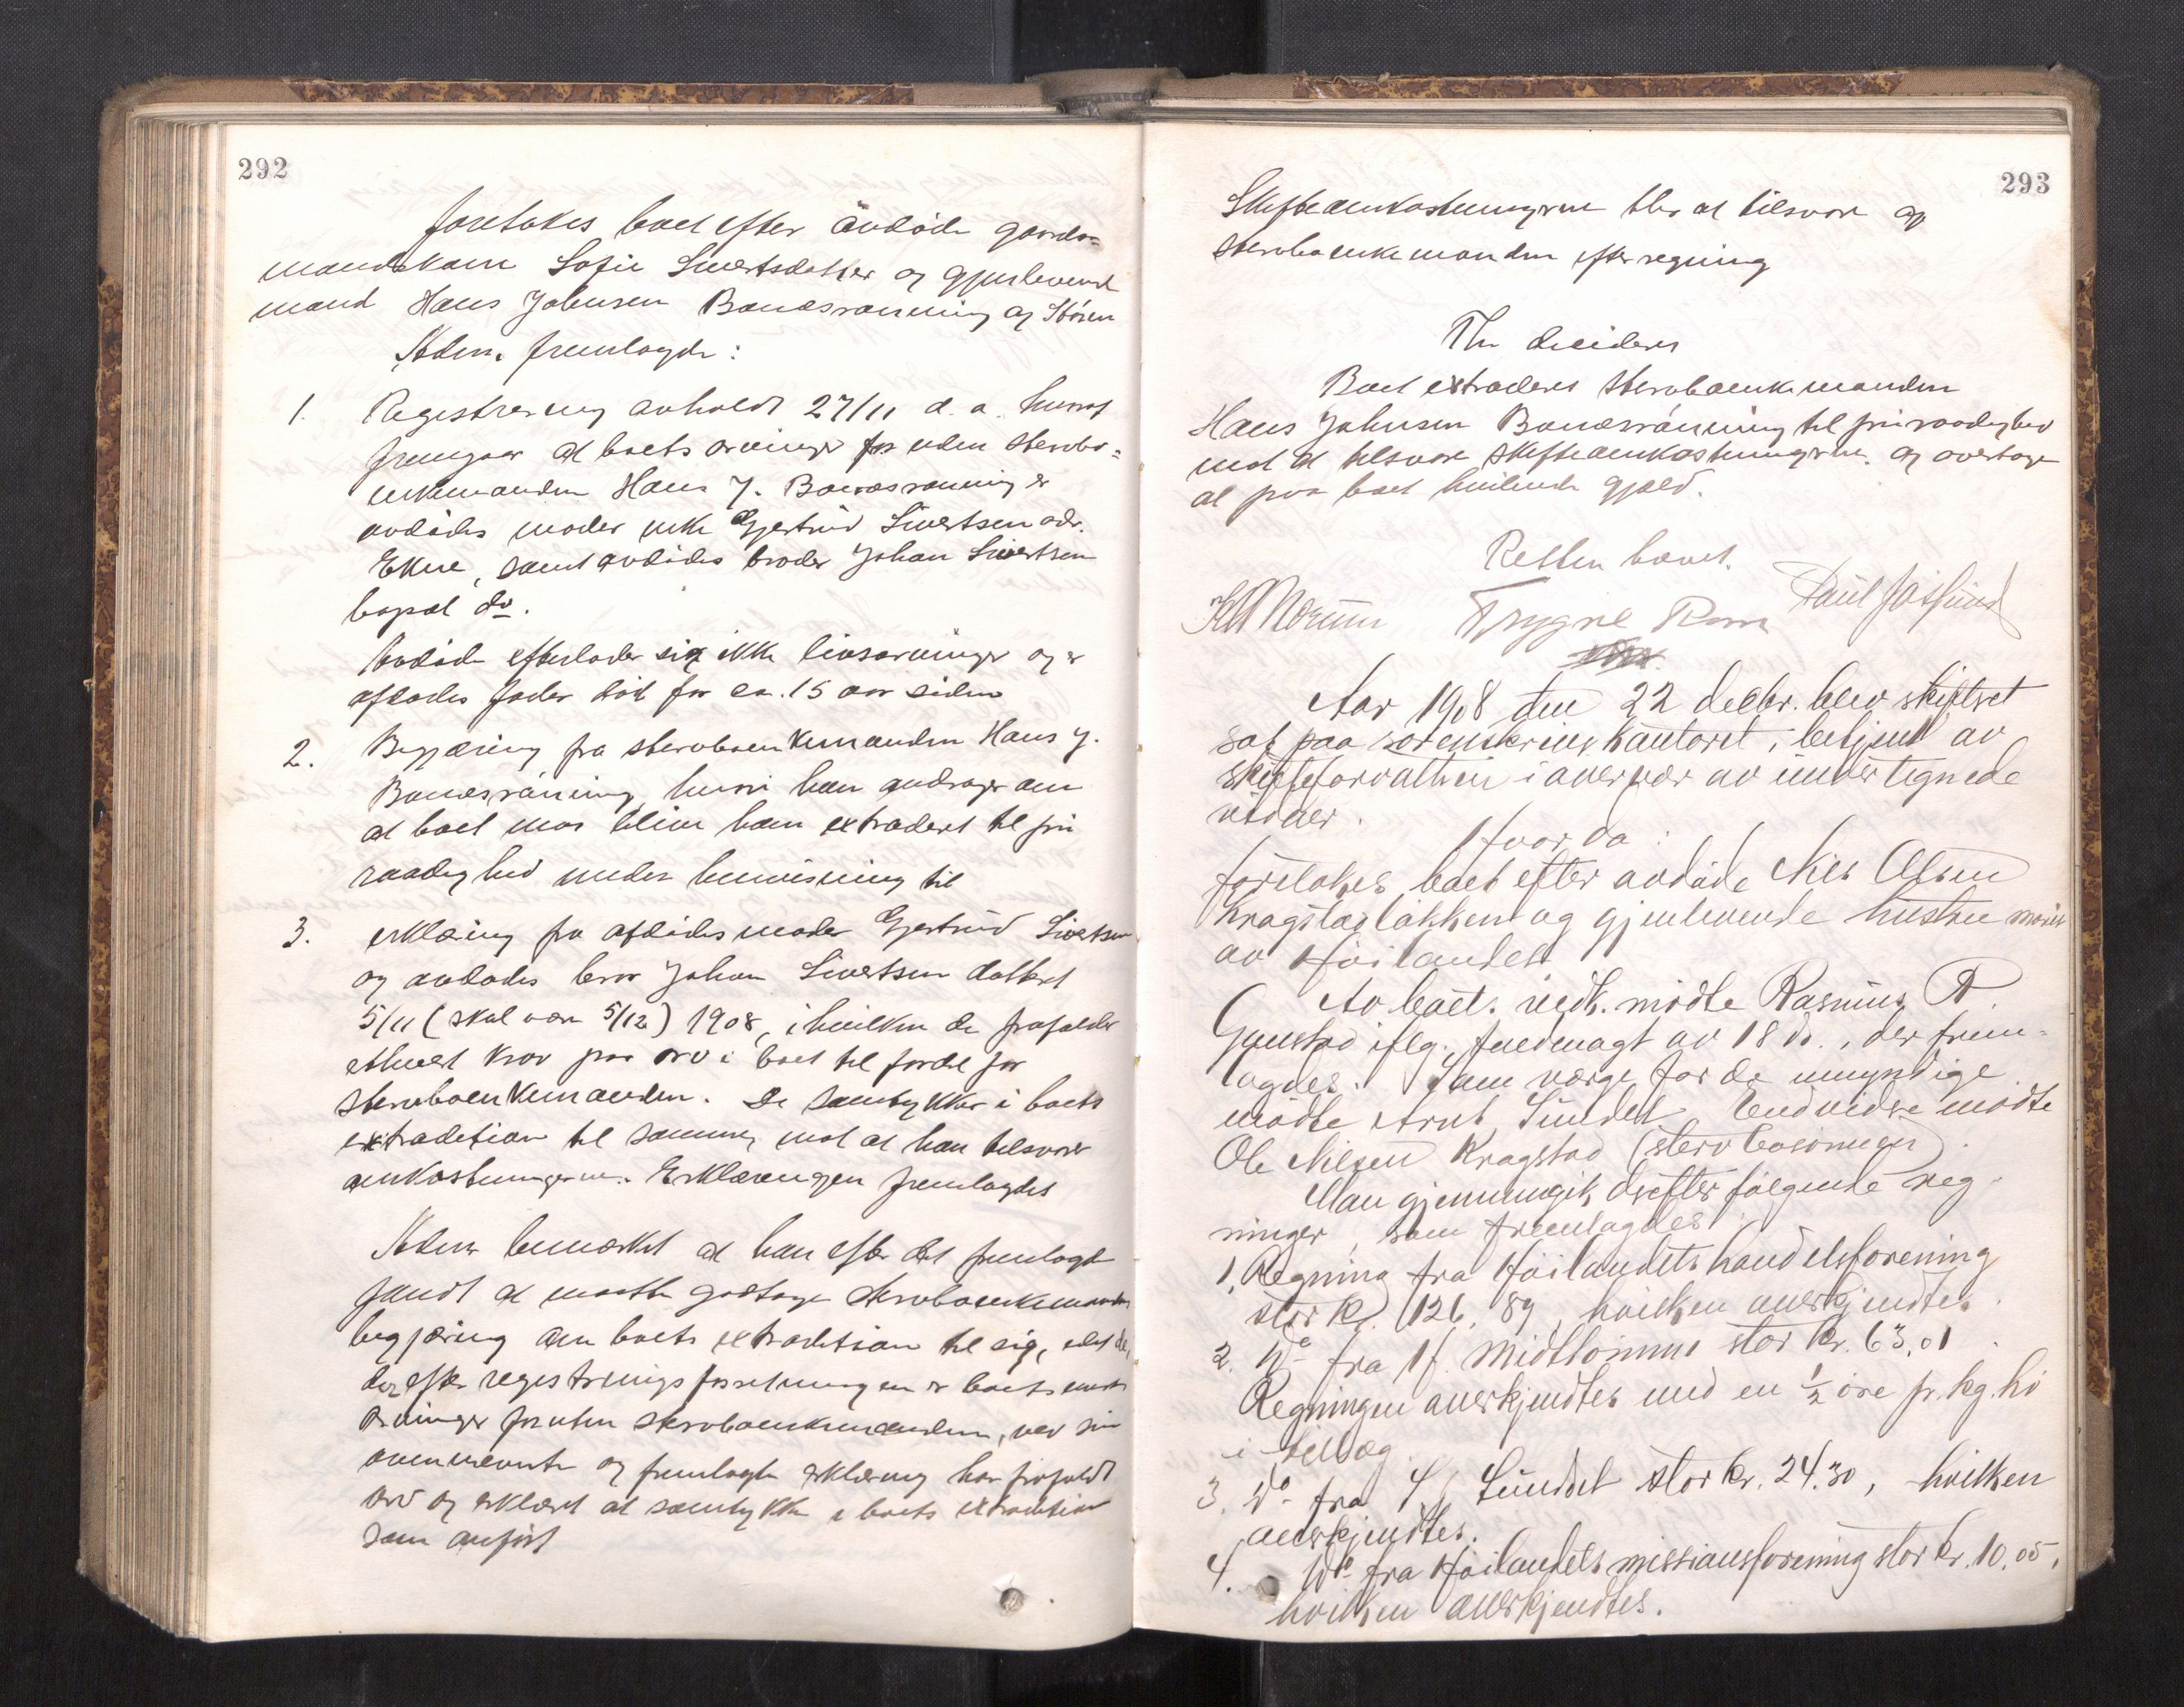 292
foretokes boet efter avdöde gaards-
mandskone Sofie Sivertsdatter og gjenlevende
mand Hans Johnsen Bonæsvanning og Stören
Adm. fremlagde:
1. Registrering avholdt 27/11 d. a. hvoraf
fremgaar at boets arvinger foruden sterbo-
enkemanden Hans J. Bonæsvanning er
avdödes moder enke Gjertrud Sivertsen adr.
Ekne, samt avdödes broder Johan Sivertsen
bopæl do.
Avdöde efterlader sig ikke livsarvinger og er
afdödes fader död for ca. 15 aar siden
2. Begjæring fra sterboenkemanden Hans J.
Bonæsvanning hvori han androger om
at boet maa blive ham extradert til fri
raadighed under henvisning til
3. erklæring fra afdödes moder Gjertrud Sivertsen
og avdödes bror Johan Sivertsen datert
5/11 (skal være 5/12) 1908, i hvilken de frafalder
ethvert krav paa arv i boet til fordel for
sterboenkemanden. De samtykker i boets
extradition til samme, mot at han tilsvarer
omkostningerne. Erklæringen fremlagdes
Adm. bemærket at han efter det fremlagte
fandt at maatte godtage sterboenkemandens
begjæring om boets extradition til sig, idet de,
der efter registreringsforretningen er boets eneste
arvinger foruten sterboenkemanden, ved sin
ovennævnte og fremlagte erklæring har frafaldt
arv og erklæret at samtykke i boets extradition
som anfört
293
Skifteomkostningerne blir at tilsvare af
sterboenkemanden efter regning
Thi decideres
Boet extraderes sterboenkemanden
Hans Johnsen Bonæsvanning til fri raadighed
mot at tilsvare skifteomkostningerne og overtage
al paa boet hvilende gjæld.
Retten hævet.
Trygve Rom Paul
Aar 1908 den 22 decbr. blev skifteret
sat paa sorenskriverkontoret, betjent av
skifteforvalteren i overvær av undertegnede
vidner.
Hvor da:
foretokes boet efter avdöde Nils Olsen
Kragstadløkken og gjenlevende hustru
av Höilandet.
Av boets vedk. mödte Rasmus A.
Ganstad iflg. fuldmagt av 18 ds., der frem-
lagdes. Som værge for de umyndige
mödte Arnt Sundet. Endvidere mödte
Ole Nilsen Kragstad (sterbosönnen).
Man gjennemgik derefter fölgende reg-
ninger, som fremlagdes:
1. Regning fra Höilandets handelsforening
stor kr. 126,89, hvilken anerkjendtes.
2. Do fra stor kr. 63,01.
Regningen anerkjendtes med en ½ öre pr. kg. hö
i tillæg.
3. Do fra Sundet stor kr. 24.30, hvilken
anerkjendtes.
4. Do fra Höilandets missionsforening stor kr. 10.05,
hvilken anerkjendtes.